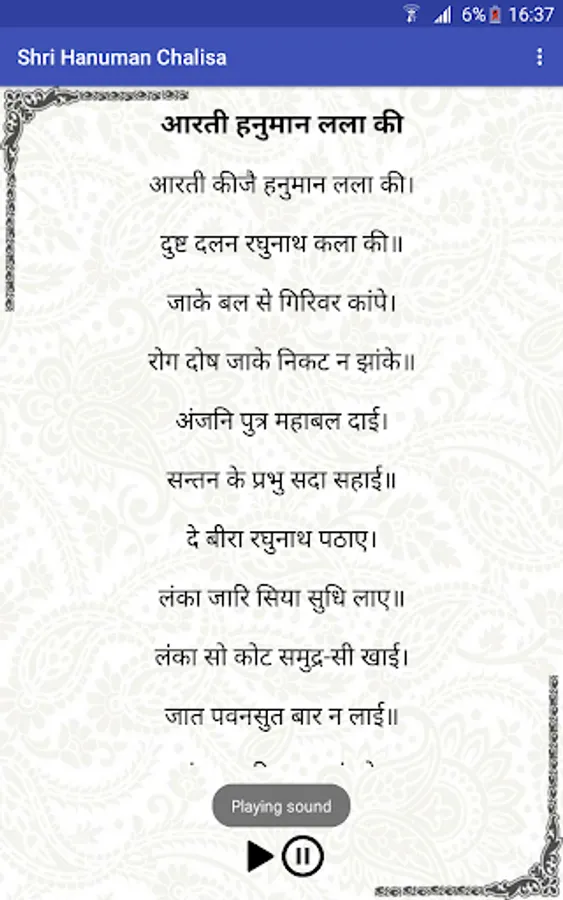 6% 16:37
Shri Hanuman Chalisa
आरती हनुमान लला की
आरती कीजै हनुमान लला की।
दुष्ट दलन रघुनाथ कला की॥
जाके बल से गिरिवर कांपे।
रोग दोष जाके निकट न झांके॥
अंजनि पुत्र महाबल दाई।
सन्तन के प्रभु सदा सहाई॥
दे बीरा रघुनाथ पठाए।
लंका जारि सिया सुधि लाए॥
लंका सो कोट समुद्र-सी खाई।
जात पवनसुत बार न लाई॥
Playing sound